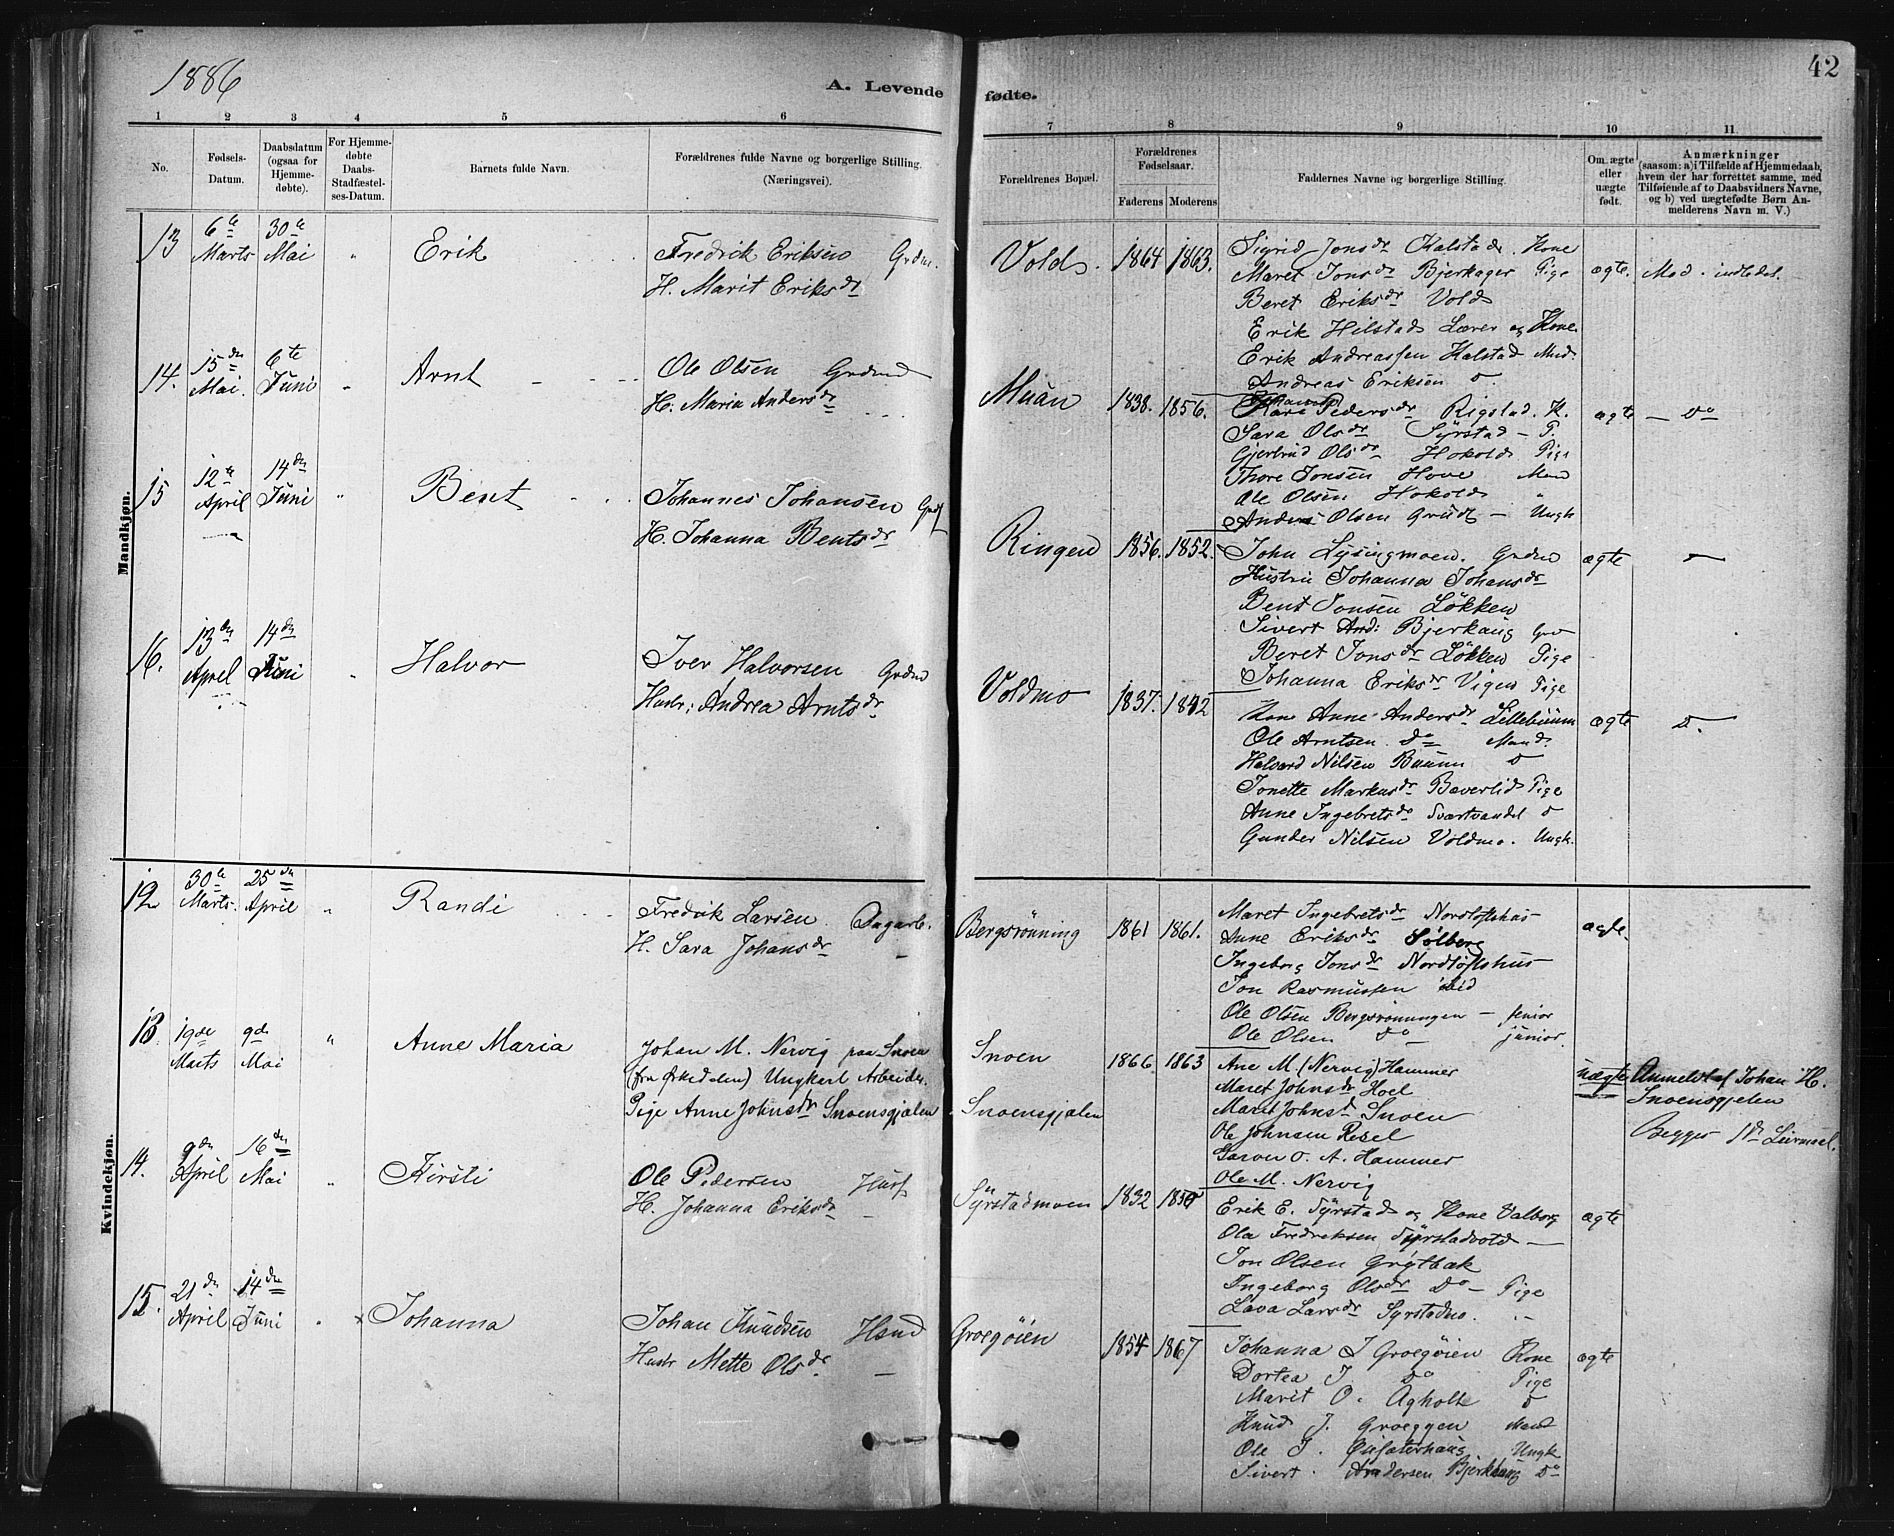 1886
A. Levende
fødte.
42
1 2 3 4 5 6 7 8 9 10 11
No.
Fødsels-Datum.
Daabsdatum (ogsaa for Hjemmedøbte).
For Hjemmedøbte Daabs-Stadfæstelses-Datum.
Barnets fulde Navn.
Forældrenes fulde Navne og borgerlige Stilling. (Næringsvei).
Forældrenes Bopæl.
Forældrenes Fødselsaar.
Faderens Moderens
Faddernes Navne og borgerlige Stilling.
Om ægte eller uægte født.
Anmærkninger (saasom: a) i Tilfælde af Hjemmedaab, hvem der har forrettet samme, med Tilføiende af to Daabsvidners Navne, og b) ved uægtefødte Børn Anmelderens Navn m. V.)
Mandkjøn.
13 6te Marts 30te Mai " Erik
Fredrik Eriksen Grdm.
H. Marit Eriksdr
Vold. 1864 1863.
Sigrid Jonsdr Kalstad. Kone
Maret Jonsdr Bjerkager Pige
Beret Eriksdr Vold
Erik Hilstad Lærer og Kone.
Erik Andreassen Kalstad Md.
Andreas Eriksen d.
ægte. Mod. indledet.
14. 15de Mai. 6te Juni " Arnt
Ole Olsen Grdmd
H. Maria Andersdr
Muan 1838. 1856.
Kari Pedersdr Rigstad. K.
Sara Olsdr Syrstad - P.
Gjertrud Olsdr Hokold Pige
Thore Jonsen Hove Mand
Ole Olsen Hokold "
Anders Olsen Grud - Ungk
ægte - Do
15 12te April 14de Juni " Bent
Johannes Johansen
H. Johanna Bentsdr
Ringen 1856. 1852.
John Lysingmoen. Grdm
Hustru Johanna Johansdr
Bent Jonsen Løkken
Sivert And: Bjerkaug
Beret Jonsdr Løkken Pige
Johanna Eriksdr Vigen Pige
ægte
16. 13de April 14de Juni " Halvor
Iver Halvorsen Grdmd
Hustr: Andrea Arntsdr
Voldmo 1837. 1842
Kone Anne Andersdr Lillebuum
Ole Arntsen. Do Mand.
Halvard Nilsen Buum d
Jonette Markusdr Bæverlid Pige
Anne Ingebretsdr Svartvandet d
Gunder Nilsen Voldmo. Ungk.
ægte d.
Kvindekjøn.
12 30te Marts. 25de April " Randi
Fredrik Larsen. Dagarb.
H. Sara Johansdr
Bergsrønning 1861 1861.
Maret Ingebretsdr Nordløftshus
Anne Eriksdr. Solberg
Ingeborg Jonsdr Nordløftshus
Jon Rasmussen ibid
Ole Olsen Bergsrønningen - senior
Ole Olsen Do - junior.
ægte.
13. 19de Marts 9de Mai " Anne Maria
Johan M. Nervig paa Snoen
(fra Ørkedalen) Ungkarl Arbeider.
Pige Anne Johnsdr Snoensgjælen
Snoen
Snoensgjælen
1866 1863
Ane M. (Nervig) Hammer
Maret Johnsdr Hoel
Marit Johnsdr Snoen
Ole Johnsen Resel
O. A. Hammer
Ole M. Nervig
uægte Anmeldt af Johan H. Snoensgjelen
Begges 1ste Leirmaal.
14. 9de April 16de Mai " Kirsti
Ole Pedersen Husf
H. Johanna Eriksdr
Syrstadmoen 1832
Erik E. Syrstad og Kone Valborg
Ola Fredriksen Syrstadvold
Jon Olsen Grøtbæk
Ingeborg Olsdr Do - Pige
Lava Larsdr Syrstadmo.
ægte
15. 21de April 14de Juni " x Johanna
Johan Knudsen Hsmd
Hustr Mette Olsdr.
Groegøien 1854 1867
Johanna J Groegøien Kone
Dortea J Do Pige
Marit O. Agholte d
Knud J. Groeggen Mand
Ole J. Ungk
Sivert. Andersen Bjerkhaug Do
ægte